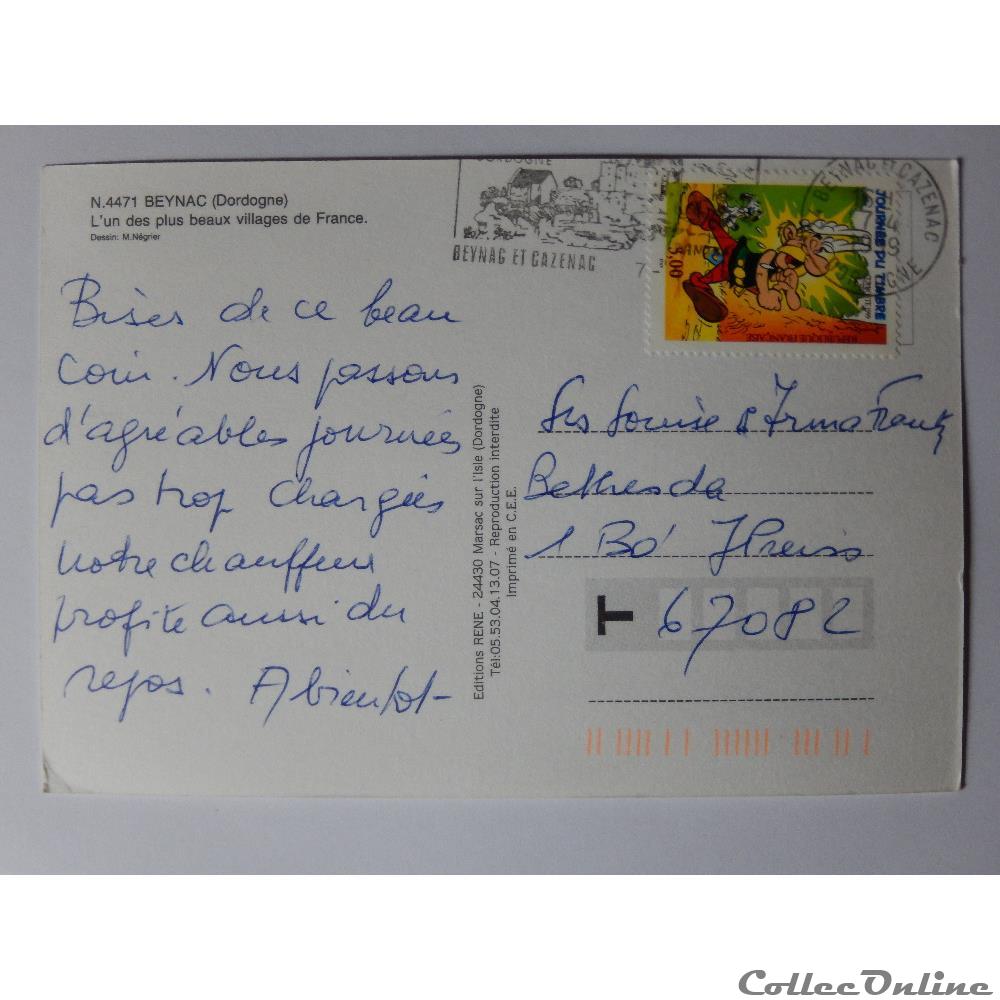 N.4471 BEYNAC (Dordogne)
L'un des plus beaux villages de France.
Dessin: M.Négrier
DORDOGNE
BEYNAC ET CAZENAC
BEYNAC ET CAZENAC
JOURNÉE DU TIMBRE
3,00
RÉPUBLIQUE FRANÇAISE
Bises de ce beau
coin. Nous passons
d'agréables journées
pas trop chargées
notre chauffeur
profite aussi du
repos. A bientot-
Editions RENE - 24430 Marsac sur l'Isle (Dordogne)
Tél:05.53.04.13.07 - Reproduction interdite
Imprimé en C.E.E.
Srs Louise & Irma Frantz
Bethesda
1 Bd
T 67082
CollecOnline